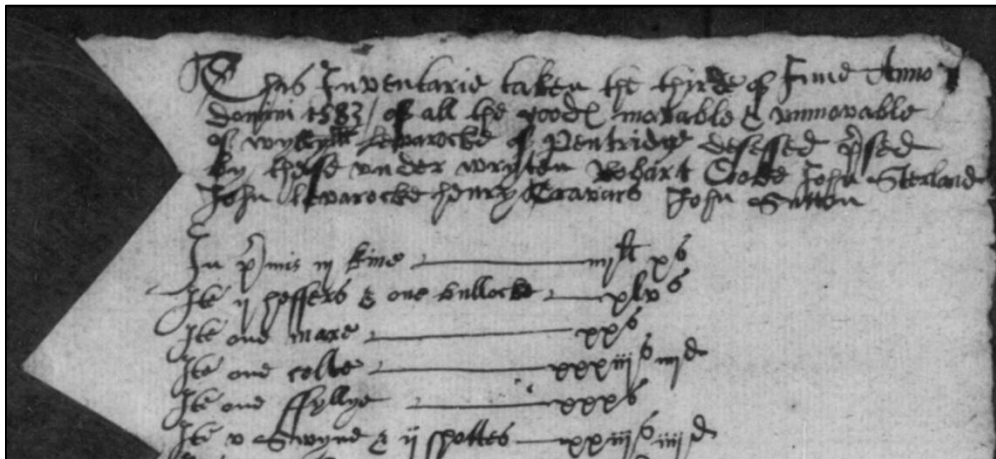 Thas Inventarie taken the thirde of June Anno
domini 1583 of all the goodes movable & unmovable
of Wyllyam Lewarocke of Pentridge desessed prsed
by theise under wryten Robart Cobe John Sterland
John Lewarocke henry Travars John Sutton
In prmis iij kine iiij li x s
Ite ij heffers & one bullocke xlv s
Ite one mare xx s
Ite one colte xxxiii s iiij d
Ite one ffyllye xxx s
Ite v Swyne & ij shottes xxiii s iiii d